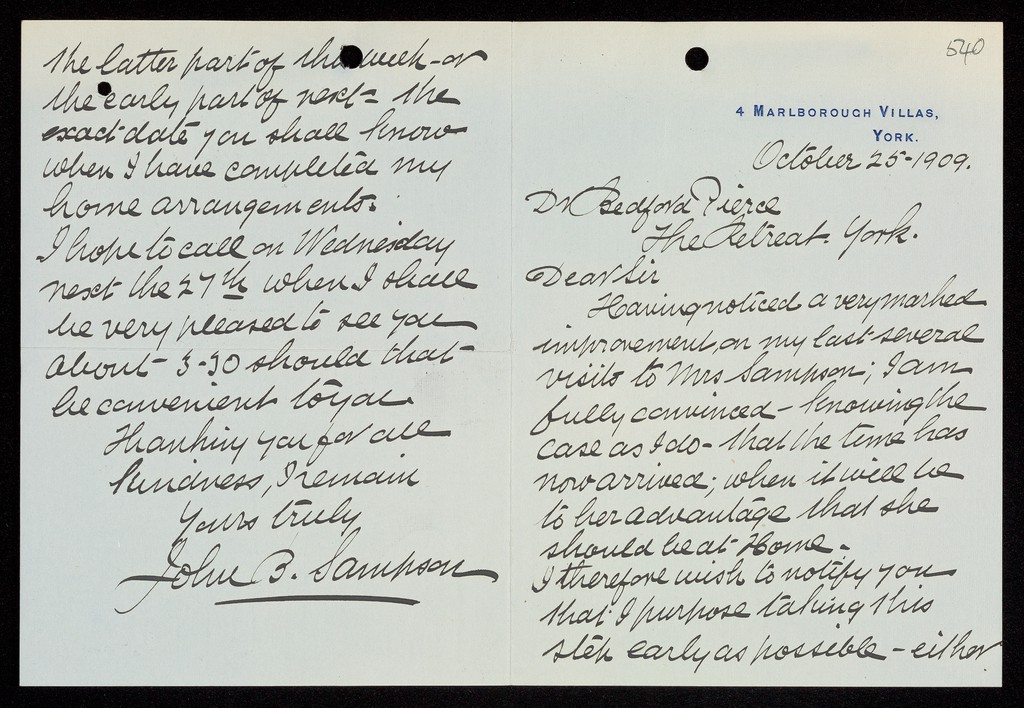 540
4 MARLBOROUGH VILLAS,
YORK.
October 25-1909.
Dr Bedford Pierce
The Retreat. York.
Dear Sir
Having noticed a very marked
improvement, on my last several
visits to Mrs Sampson; I am
fully convinced - knowing the
case as I do - that the time has
now arrived; when it will be
to her advantage that she
should be at Home.
I therefore wish to notify you
that I purpose taking this
step early as possible - either
the latter part of this week - or
the early part of next - the
exact date you shall know
when I have completed my
home arrangements.
I hope to call on Wednesday
next the 27th when I shall
be very pleased to see you
about - 3-30 should that
be convenient to you.
Thanking you for all
kindness, I remain
Yours truly
John B. Sampson